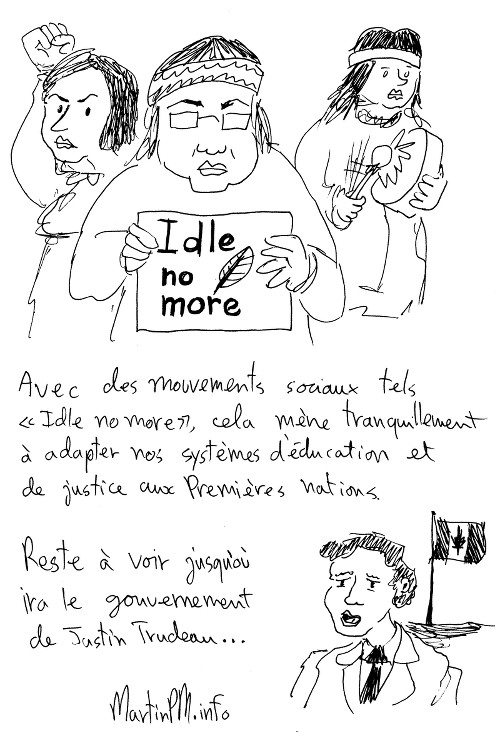 Idle
no
more
Avec des mouvements sociaux tels
« Idle no more », cela mène tranquillement
à adapter nos systèmes d'éducation et
de justice aux Premières nations.
Reste à voir jusqu'où
ira le gouvernement
de Justin Trudeau...
MartinPM.info